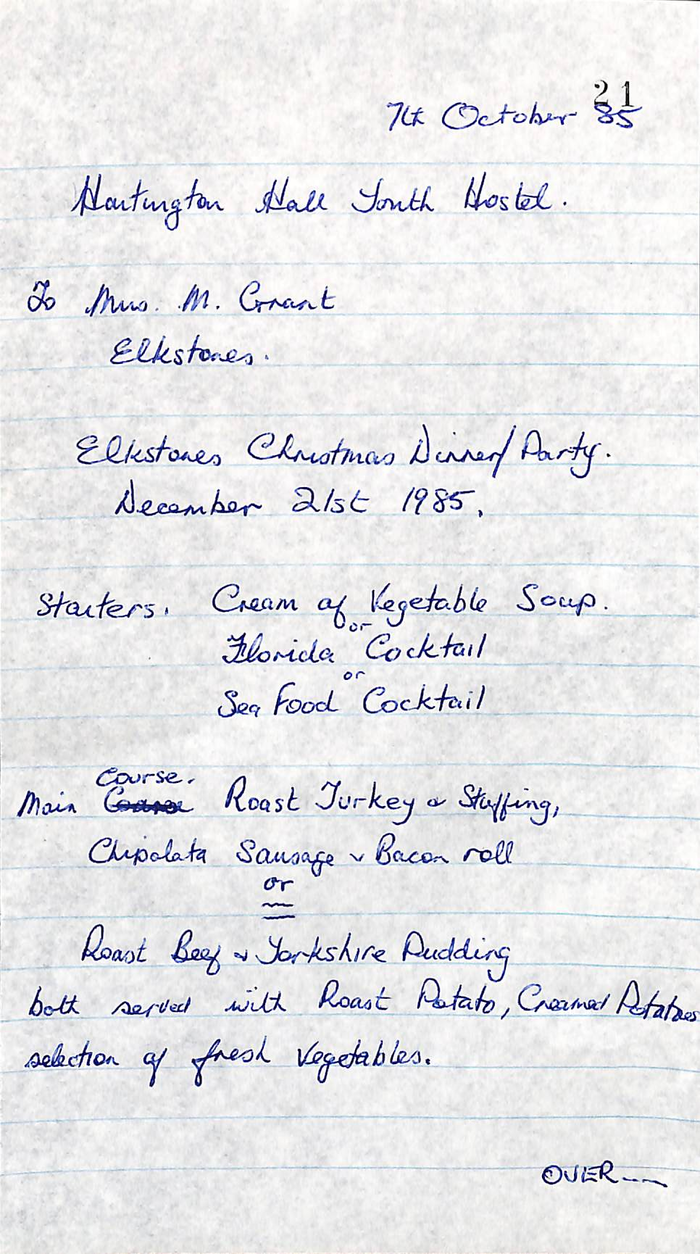 21
7th October 85
Hartington Hall Youth Hostel.
To Mrs. M. Grant
Elkstones.
Elkstones Christmas Dinner/Party.
December 21st 1985.
Starters. Cream of Vegetable Soup.
or
Florida Cocktail
or
Sea Food Cocktail
Course.
Main Roast Turkey & Stuffing,
Chipolata Sausage & Bacon roll
or
Roast Beef & Yorkshire Pudding
both served with Roast Potato, Creamed Potatoes
selection of fresh Vegetables.
OVER---